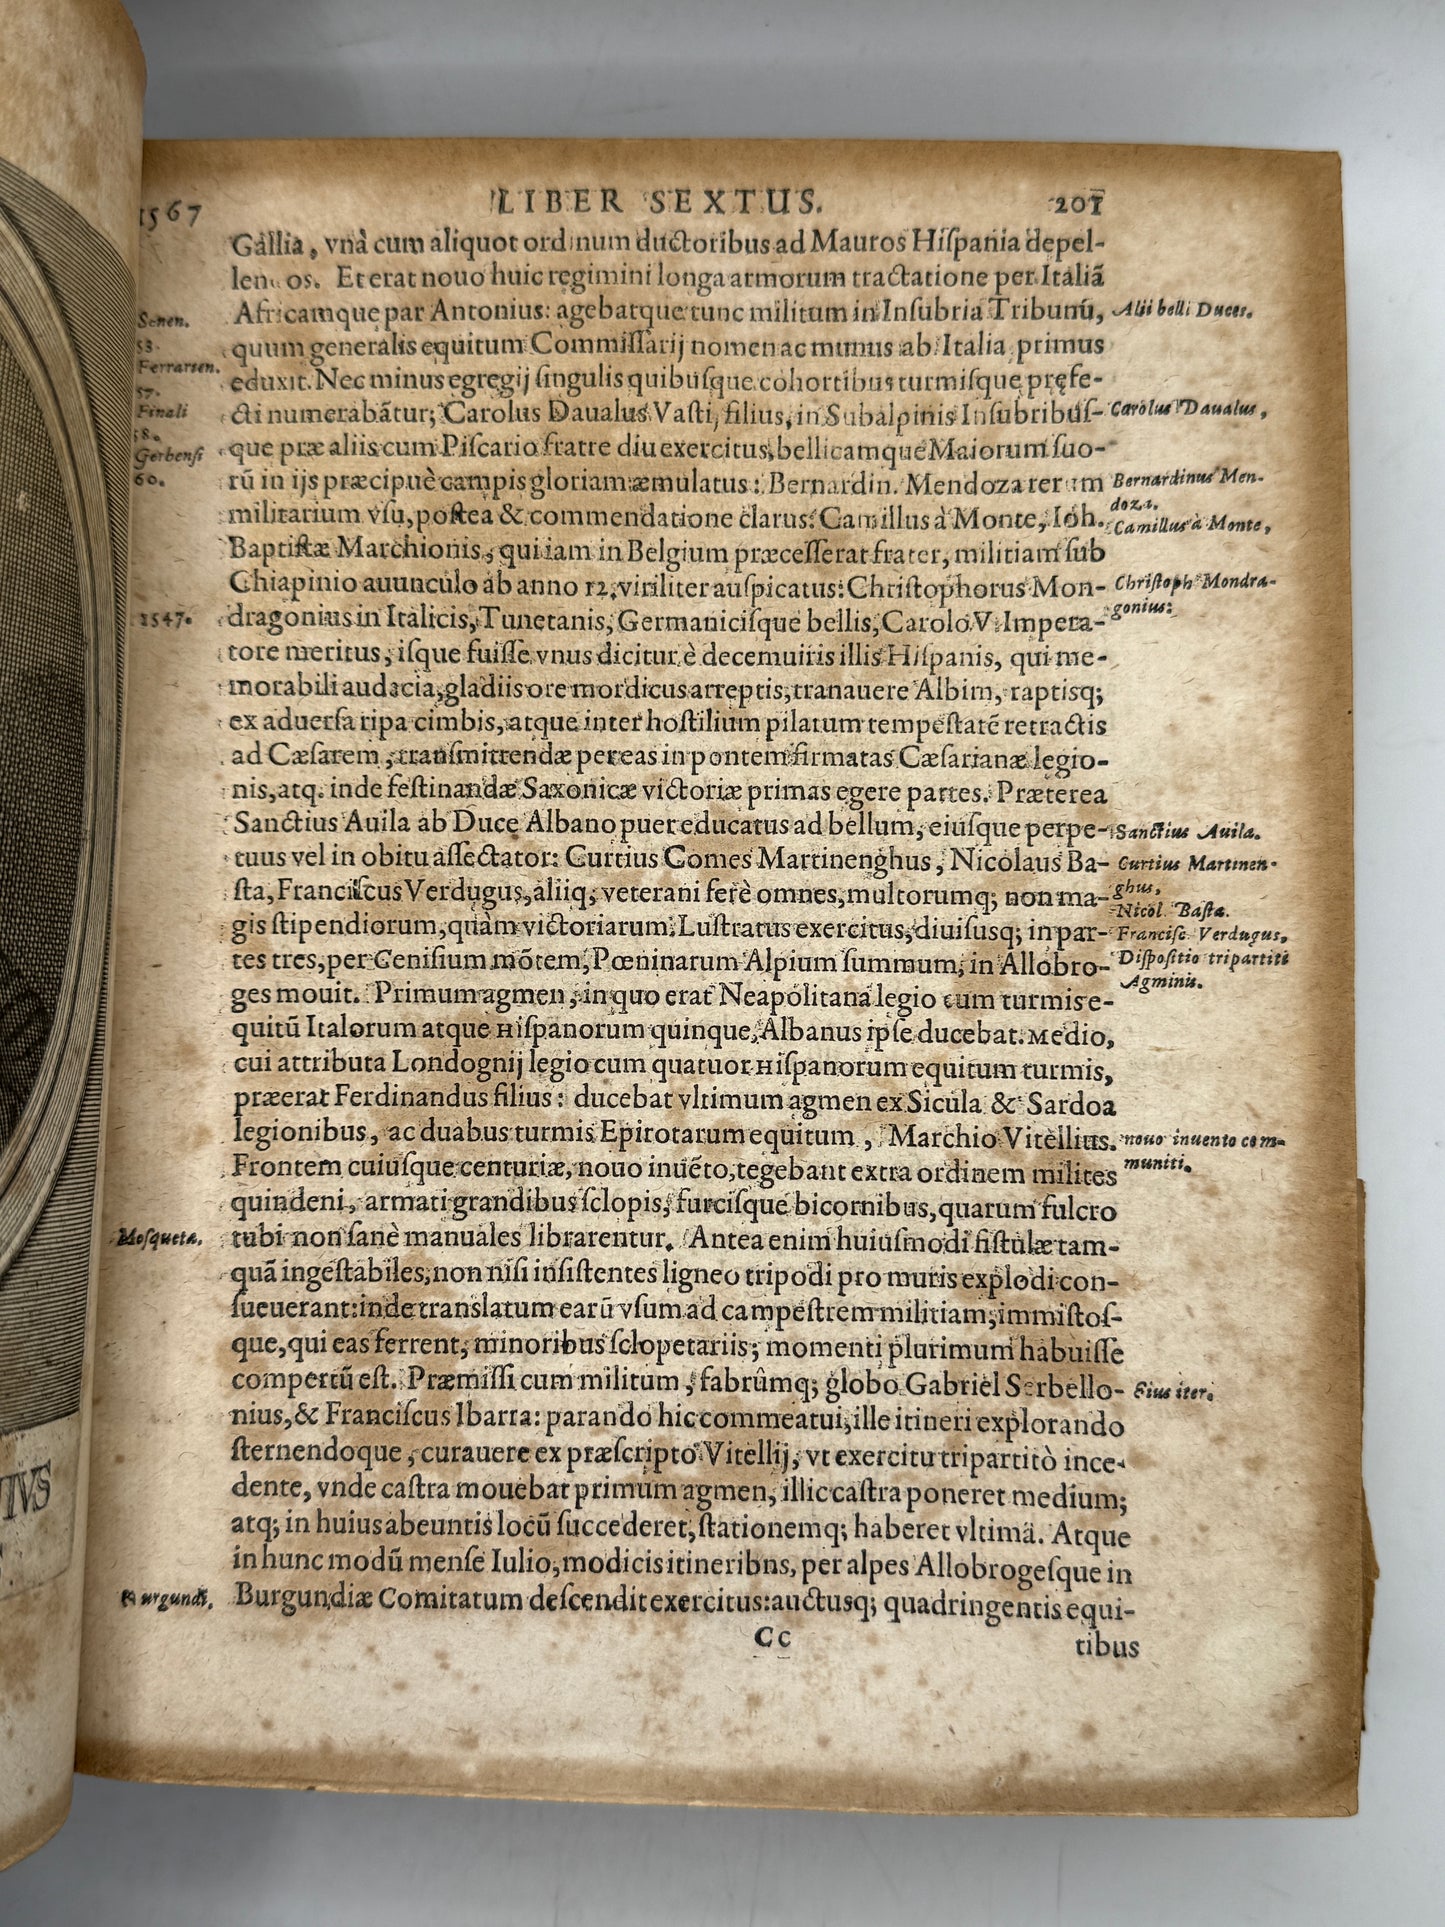 1567 LIBER SEXTUS. 201
Gallia, vnâ cum aliquot ordinum ductoribus ad Mauros Hiſpania depel-
os. Et erat nouo huic regimini longa armorum tractatione per Italiā
Africamque par Antonius: agebatque tunc militum in Inſubria Tribunū,
quum generalis equitum Commiſſarij nomen ac munus ab Italia primus
eduxit. Nec minus egregij ſingulis quibuſque cohortibus turmiſque pręfe-
cti numerabātur; Carolus Daualus Vaſti, filius, in Subalpinis Inſubribuſ-
que præ aliis cum Piſcario fratre diu exercitus, bellicamque Maiorum ſuo-
rū in ijs præcipuè campis gloriam æmulatus: Bernardin. Mendoza rerum
militarium vſu, poſtea & commendatione clarus: Camillus à Monte, Ioh.
Baptiſtæ Marchionis, qui iam in Belgium præceſſerat frater, militiam ſub
Chiapinio auunculo ab anno 12, viriliter auſpicatus: Chriſtophorus Mon-
dragonius in Italicis, Tunetanis, Germaniciſque bellis, Carolo V. Impera-
tore meritus, iſque fuiſſe vnus dicitur è decemuiris illis Hiſpanis, qui me-
morabili audacia, gladiis ore mordicus arreptis, tranauere Albim, raptisq;
ex aduerſa ripa cimbis, atque inter hoſtilium pilatum tempeſtatē retractis
ad Cæſarem, tranſmittendæ per eas in pontem firmatas Cæſarianæ legio-
nis, atq. inde feſtinandæ Saxonicæ victoriæ primas egere partes. Præterea
Sanctius Auila ab Duce Albano puer educatus ad bellum, eiuſque perpe-
tuus vel in obitu aſſectator: Curtius Comes Martinenghus, Nicolaus Ba-
ſta, Franciſcus Verdugus, aliiq; veterani ferè omnes, multorumq; non ma-
gis ſtipendiorum, quàm victoriarum. Luſtratus exercitus, diuiſusq; in par-
tes tres, per Geniſium mōtem, Pœninarum Alpium ſummum, in Allobro-
ges mouit. Primum agmen, in quo erat Neapolitana legio cum turmis e-
quitū Italorum atque Hiſpanorum quinque, Albanus ipſe ducebat. Medio,
cui attributa Londognij legio cum quatuor Hiſpanorum equitum turmis,
præerat Ferdinandus filius: ducebat vltimum agmen ex Sicula & Sardoa
legionibus, ac duabus turmis Epirotarum equitum, Marchio Vitellius.
Frontem cuiuſque centuriæ, nouo inuēto, tegebant extra ordinem milites
quindeni, armati grandibus ſclopis, furciſque bicornibus, quarum fulcro
tubi non ſanè manuales librarentur. Antea enim huiuſmodi fiſtulæ tam-
quā ingeſtabiles, non niſi inſiſtentes ligneo tripodi pro muris explodi con-
ſueuerant: inde translatum earū vſum ad campeſtrem militiam, immiſtoſ-
que, qui eas ferrent, minoribus ſclopetariis; momenti plurimum habuiſſe
compertū eſt. Præmiſſi cum militum, fabrûmq; globo Gabriel Serbello-
nius, & Franciſcus Ibarra: parando hic commeatui, ille itineri explorando
ſternendoque, curauere ex præſcripto Vitellij, vt exercitu tripartitò ince-
dente, vnde caſtra mouebat primum agmen, illic caſtra poneret medium;
atq; in huius abeuntis locū ſuccederet, ſtationemq; haberet vltimā. Atque
in hunc modū menſe Iulio, modicis itineribns, per alpes Allobrogeſque in
Burgundiæ Comitatum deſcendit exercitus: auctusq; quadringentis equi-
Cc tibus
Senen.
53.
Ferrarien.
57.
Finali
58.
Gerbenſi
60.
1547.
Moſqueta.
Burgundi.
Alii belli Duces.
Carolus Daualus,
Bernardinus Men-
doza.
Camillus à Monte,
Chriſtoph Mondra-
gonius:
Sanctius Auila.
Curtius Martinen-
ghus,
Nicol. Baſta.
Franciſc Verdugus,
Diſpoſitio tripartiti
Agminis.
nouo inuento com-
muniti.
Eius iter.